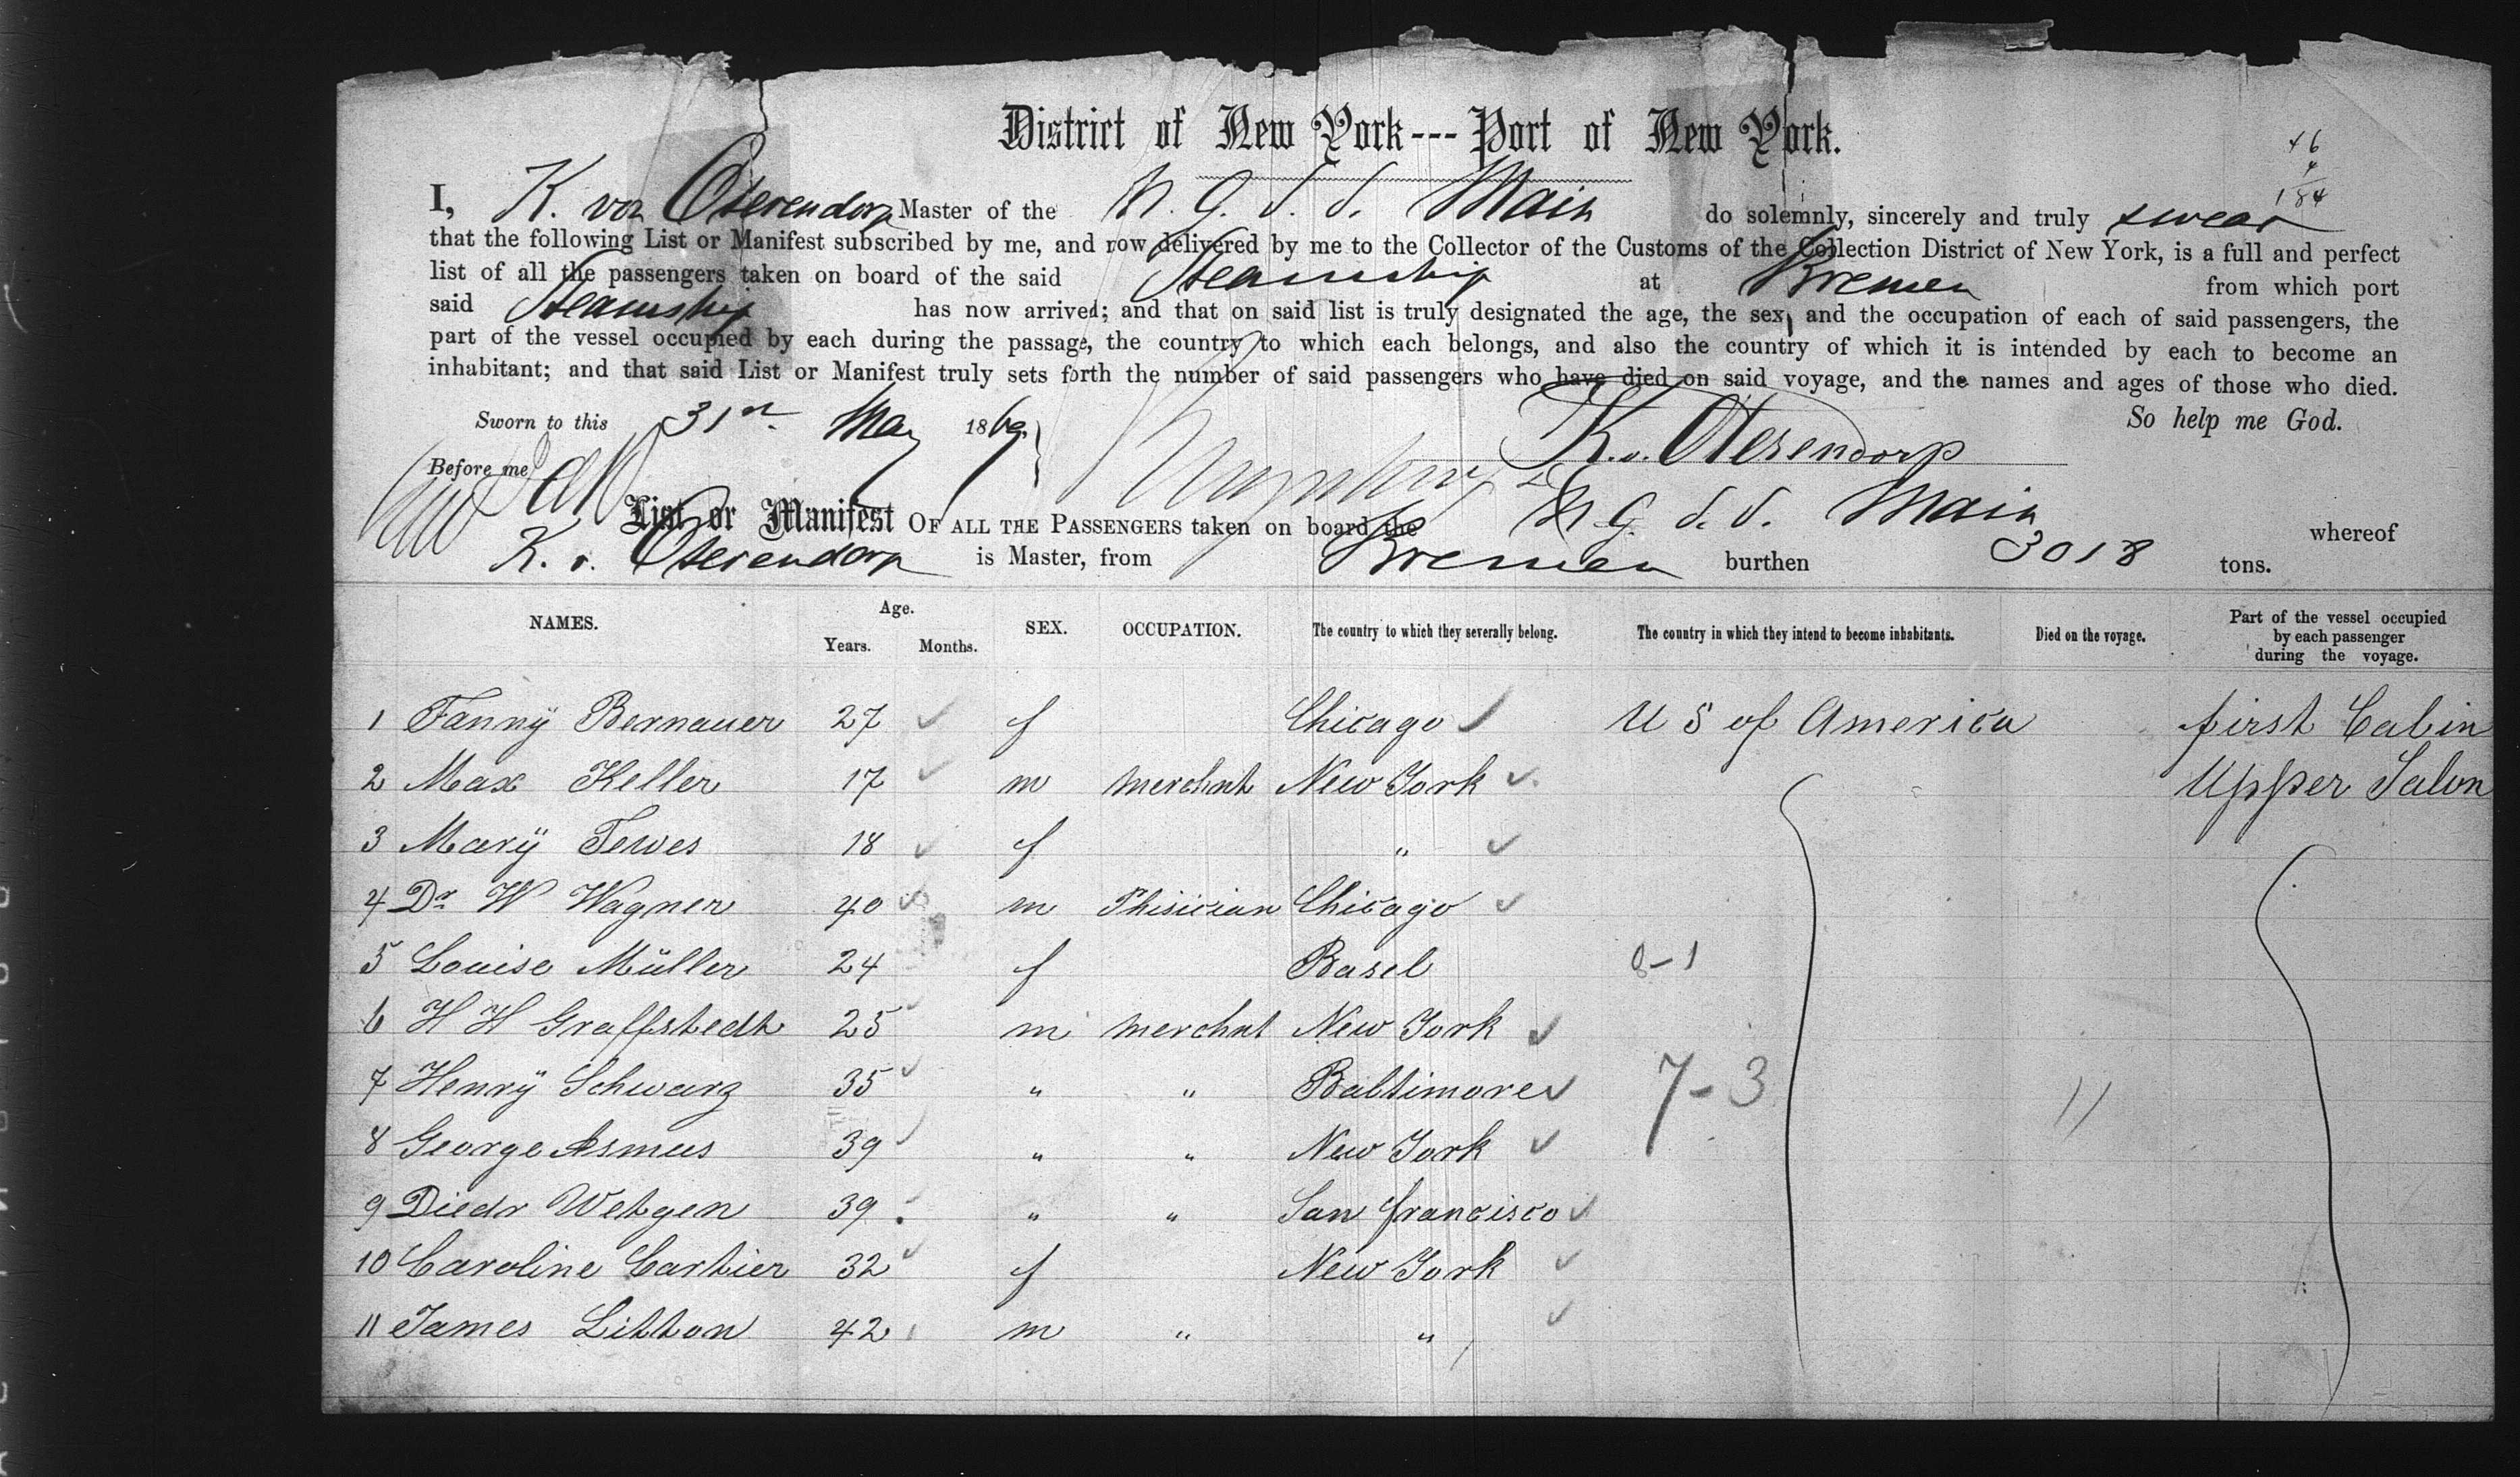 District of New York---Port of New York.
46
4
184
I, K. von Oterendorp Master of the N. G. S. S. Main do solemnly, sincerely and truly swear
that the following List or Manifest subscribed by me, and now delivered by me to the Collector of the Customs of the Collection District of New York, is a full and perfect
list of all the passengers taken on board of the said Steamship at Bremen from which port
said Steamship has now arrived; and that on said list is truly designated the age, the sex, and the occupation of each of said passengers, the
part of the vessel occupied by each during the passage, the country to which each belongs, and also the country of which it is intended by each to become an
inhabitant; and that said List or Manifest truly sets forth the number of said passengers who have died on said voyage, and the names and ages of those who died.
Sworn to this 31st May 1869. So help me God.
Before me K. v. Oterendorp
List or Manifest OF ALL THE PASSENGERS taken on board the N G. S. S. Main whereof
K. v. Oterendorp is Master, from Bremen burthen 3018 tons.
NAMES. Age. Years. Months. SEX. OCCUPATION. The country to which they severally belong. The country in which they intend to become inhabitants. Died on the voyage. Part of the vessel occupied by each passenger during the voyage.
1 Fannÿ Bernauer 27 f Chicago U S of America first Cabin
2 Max Keller 17 m merchnt New York Upper Salon
3 Marÿ Tewes 18 f "
4 Dr W Wagner 40 m Phisician Chicago
5 Louise Müller 24 f Basel 8-1
6 H H Graffstedt 25 m merchnt New York
7 Henrÿ Schwarz 35 " " Baltimore 7-3 11
8 George Asmus 39 " " New York
9 Diedr Wetgen 39 " " San francisco
10 Caroline Cartier 32 f New York
11 James Litton 42 m " "